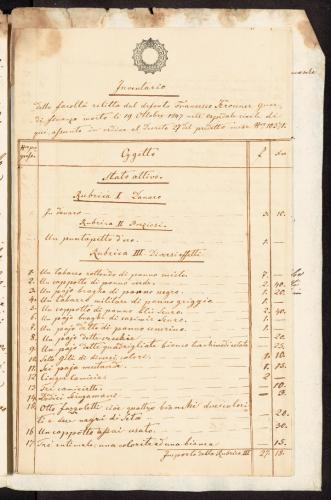 Inventario
della facoltà relitta del defonto Francesco Kronner guar-
di finanza morto li 19 Ottobre 1847 nell' ospitale civile di
qui, assunto in ordine al Decreto 27 del predetto mese N°
Oggetto
f.
Stato attivo.
Rubrica I Danaro
In danaro
3. 10.
Rubrica II Preziosi.
Un puntapetto d'oro.
1. —
Rubrica III. Diversi effetti
1. Un tabarro rotondo di panno misto
7. —
2. Un cappotto di panno verde.
2. 40.
3. Un pajo braghe di panno negro.
1. 20.
4. Un tabarro militare di panno griggio
1. —
5. Un cappotto di panno bleu scuro.
2. 40.
6. Un pajo braghe di casimir scuro.
1. —
7. Un pajo dette di panno cenerino.
1. —
8. Un pajo dette vecchie
20.
9. Un pajo dette quadrigliate bianco
10. Sette gilé di diversi colori.
1. 10.
11. Sei paja mutande.
1. 15.
12. Cinque camicie
2. —
13. Tre camiciotti
10.
14. Sedici
15. Otto fazzoletti cioè quattro bianchi due colori-
ti e due negri di seta.
20.
16. Un cappotto assai usato.
30.
17. Tre entimele, una colorita ed una bianca
15.
Importo della Rubrica III
27. 18.